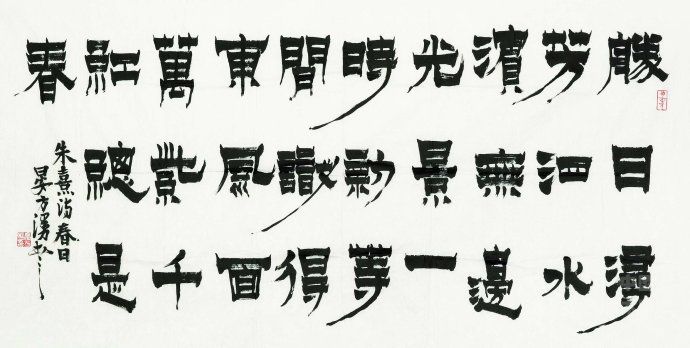 勝日潯
芳泗水
濱無邊
光景一
時新等
間識得
東風面
萬紫千
紅總是
春
朱熹詩春日